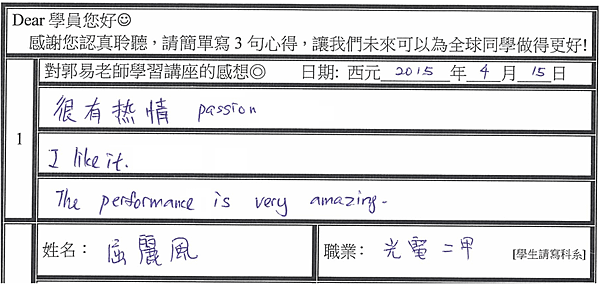 Dear 學員您好☺
感謝您認真聆聽，請簡單寫 3 句心得，讓我們未來可以為全球同學做得更好!
對郭易老師學習講座的感想◎ 日期: 西元 2015 年 4 月 15 日
1
很有热情 passion
I like it.
The performance is very amazing.
姓名： 屈麗風 職業： 光電二甲 [學生請寫科系]